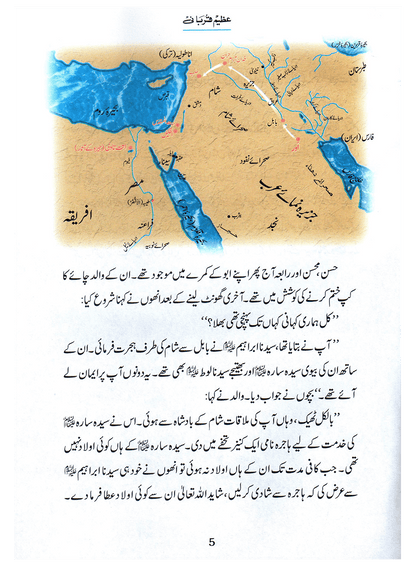 عظیم قربانی
اناطولیہ (ترکی)
طبرستان
نینویٰ
شام
جزیرہ
قبرص
بحیرۂ روم
دمشق
بابل
فارس (ایران)
صحرائے شام
صحرائے نفود
سینا
مصر
جزیرہ نمائے عرب
افریقہ
یثرب
نجد
فراعنہ
صحرائے نوبہ
حسن، محسن اور رابعہ آج پھر اپنے ابو کے کمرے میں موجود تھے۔ ان کے والد چائے کا
کپ ختم کرنے کی کوشش میں تھے۔ آخری گھونٹ لینے کے بعد انھوں نے کہنا شروع کیا:
’’کل ہماری کہانی کہاں تک پہنچی تھی بھلا؟‘‘
’’آپ نے بتایا تھا، سیدنا ابراہیم علیہ السلام نے بابل سے شام کی طرف ہجرت فرمائی۔ ان کے
ساتھ ان کی بیوی سیدہ سارہ علیہا السلام اور بھتیجے سیدنا لوط علیہ السلام بھی تھے۔ یہ دونوں آپ پر ایمان لے
آئے تھے۔‘‘ بچوں نے جواب دیا۔ والد نے کہا:
’’بالکل ٹھیک، وہاں آپ کی ملاقات شام کے بادشاہ سے ہوئی۔ اس نے سیدہ سارہ علیہا السلام
کی خدمت کے لیے ہاجرہ نامی ایک کنیز تحفے میں دی۔ سیدہ سارہ علیہا السلام کے ہاں کوئی اولاد نہیں
تھی۔ جب کافی مدت تک ان کے ہاں اولاد نہ ہوئی تو انھوں نے خود ہی سیدنا ابراہیم علیہ السلام
سے عرض کی کہ ہاجرہ سے شادی کر لیں، شاید اللہ تعالیٰ ان سے کوئی اولاد عطا فرما دے۔
5